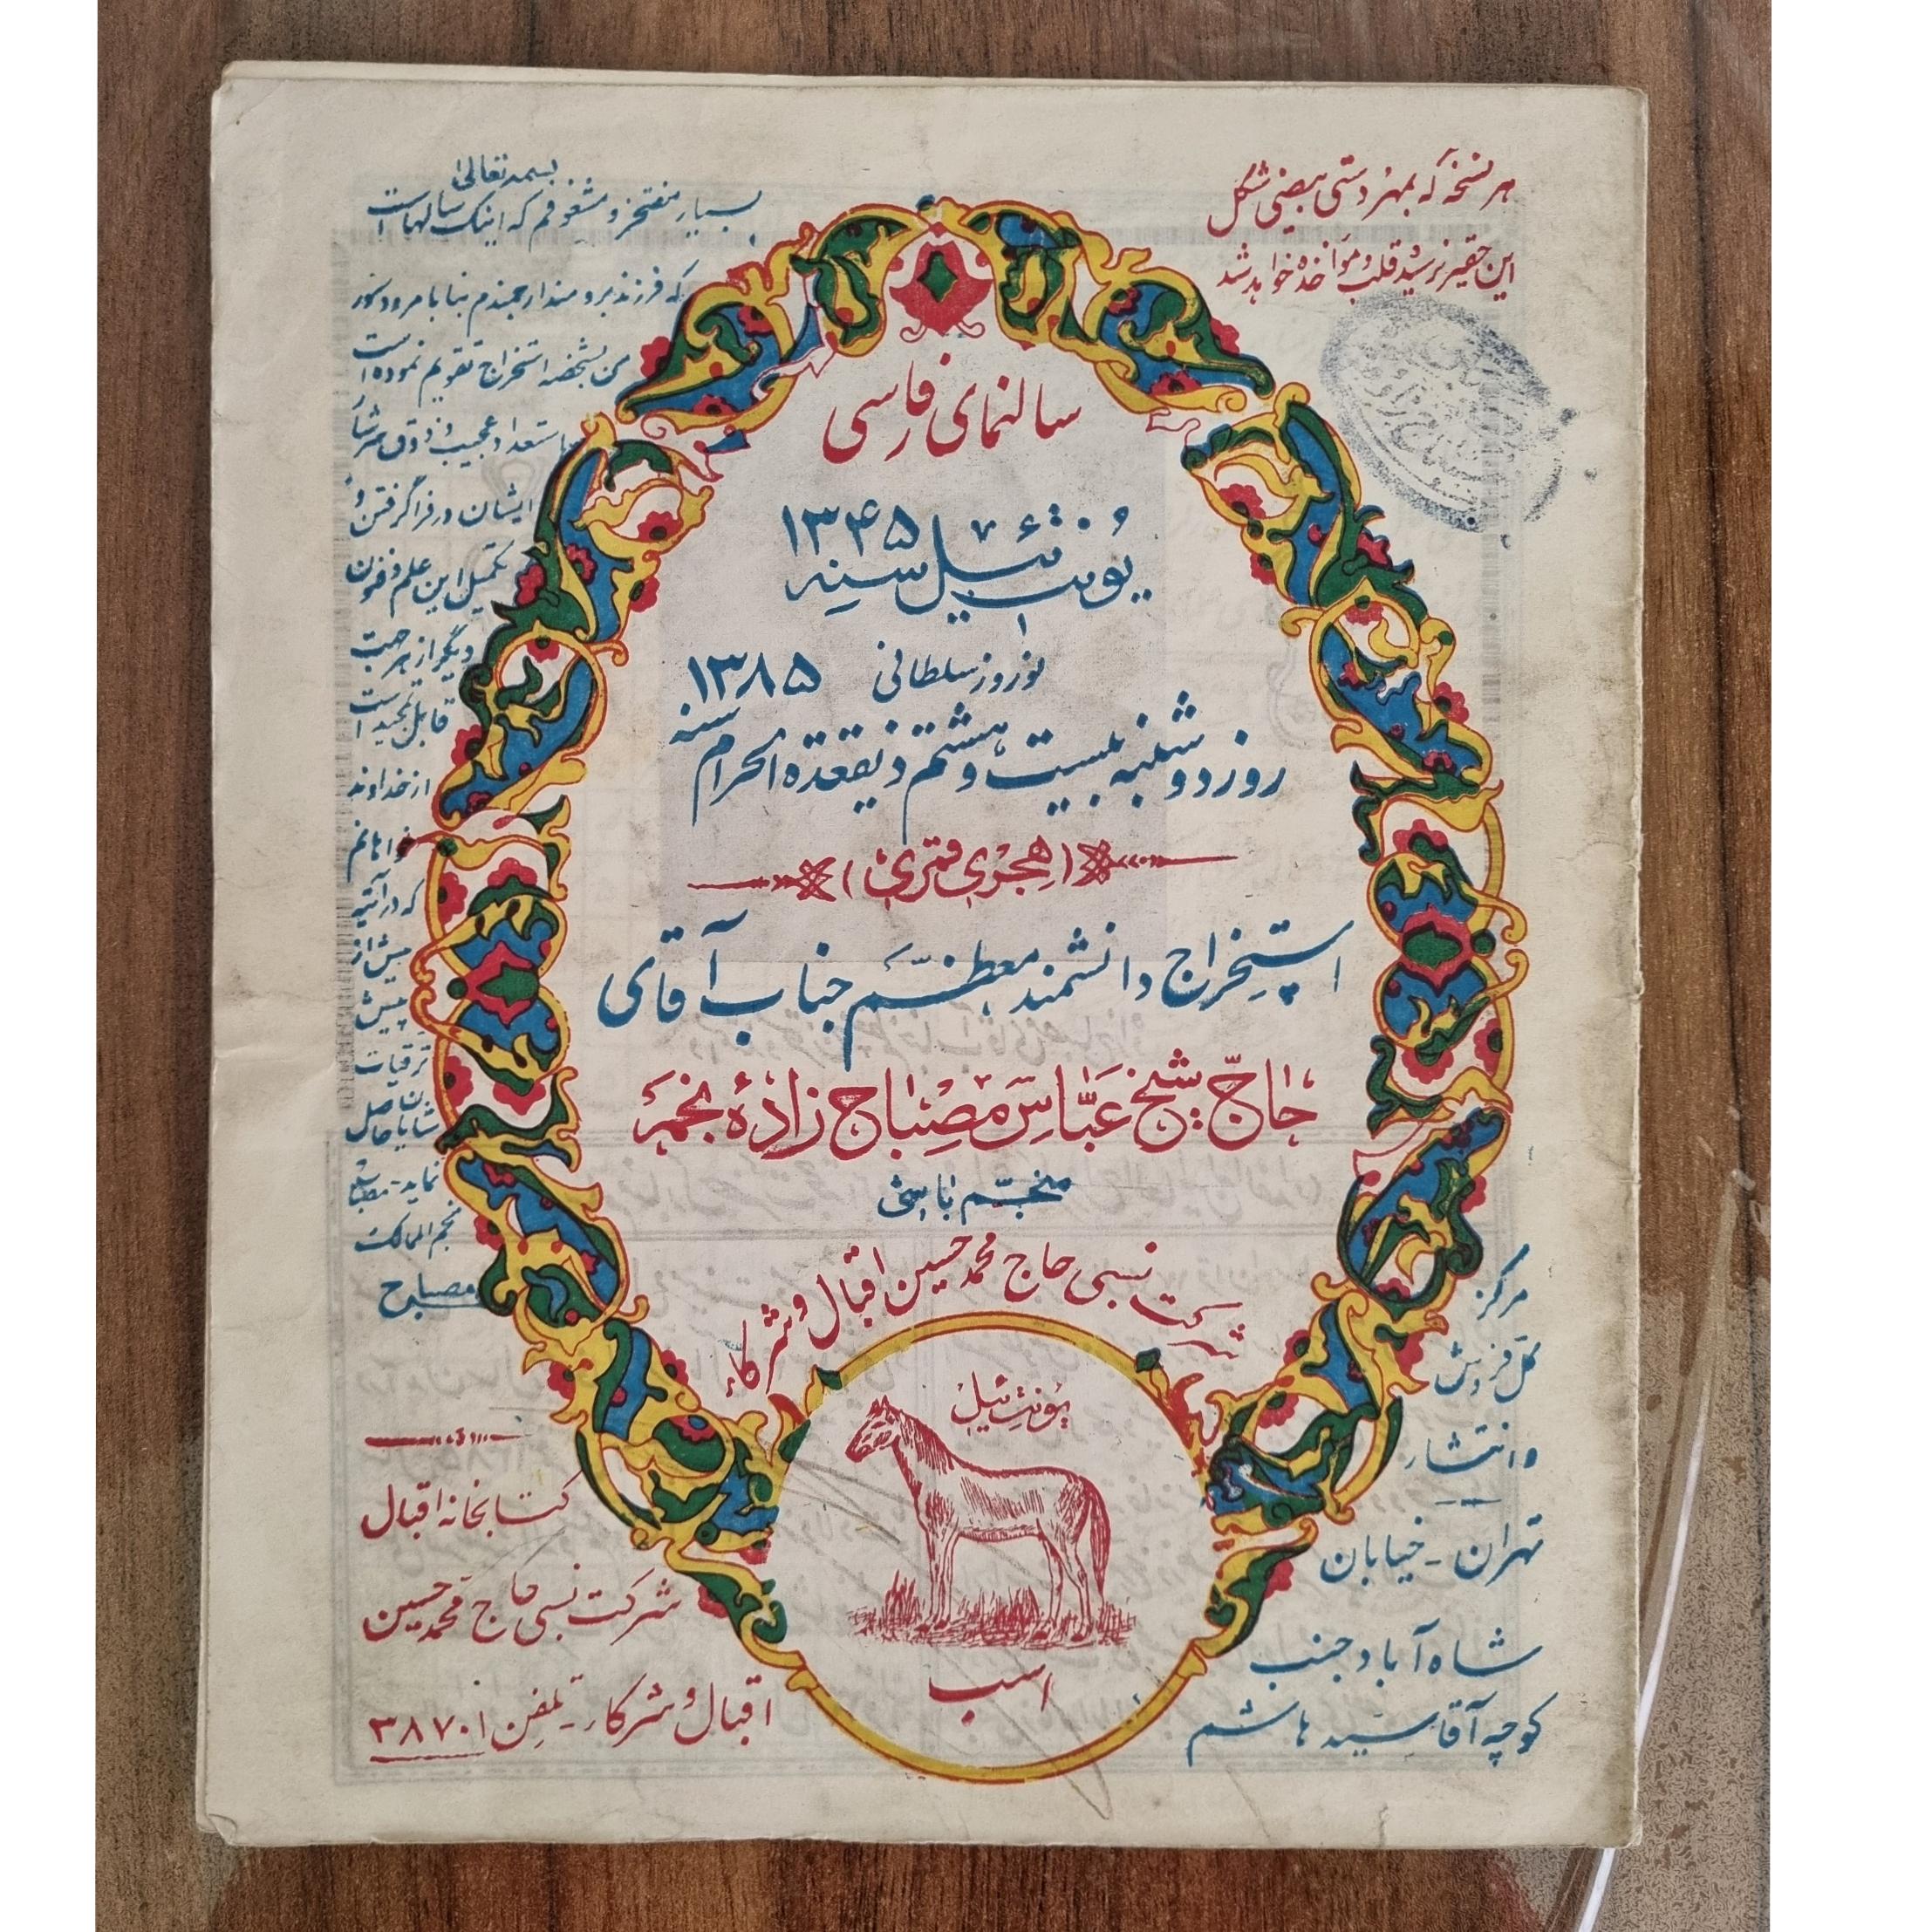 هر نسخه که بمهر دستی بیضی شکل
این حقیر نرسید قلب و مواخذه خواهد شد
بسمه تعالی
بسیار مفتخر و مشعوفم که اینک سالهاست
که فرزند برومند ارجمندم بنا بامر و دستور
من بشخصه استخراج تقویم نموده است
استعداد عجیب و ذوق سرشار
ایشان در فراگرفتن و
تکمیل این علم و فنون
دیگر از هر جهت
قابل تمجید است
از خداوند
خواهانم
که در آتیه
بیش از
پیش
ترقیات
شایان حاصل
نماید - مصباح
نجم الممالک
مصباح
سالنمای فارسی
یونت ئیل سنه ۱۳۴۵
نوروز سلطانی
روز دوشنبه بیست و هشتم ذیقعدة الحرام سنه ۱۳۸۵
(هجری قمری)
استخراج دانشمند معظم جناب آقای
حاج شیخ عباس مصباح زاده نجم
منجم باشی
شرکت نسبی حاج محمد حسین اقبال و شرکاء
یونت ئیل
اسب
مرکز
کل فروش
و انتشار
تهران - خیابان
شاه آباد جنب
کوچه آقا سید هاشم
کتابخانه اقبال
شرکت نسبی حاج محمد حسین
اقبال و شرکاء - تلفن ۳۸۷۰۱